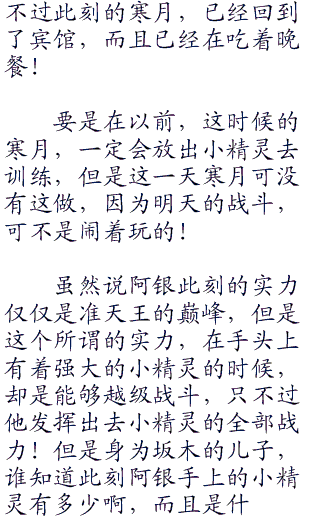 不过此刻的寒月，已经回到
了宾馆，而且已经在吃着晚
餐！
要是在以前，这时候的
寒月，一定会放出小精灵去
训练，但是这一天寒月可没
有这做，因为明天的战斗，
可不是闹着玩的！
虽然说阿银此刻的实力
仅仅是准天王的巅峰，但是
这个所谓的实力，在手头上
有着强大的小精灵的时候，
却是能够越级战斗，只不过
他发挥出去小精灵的全部战
力！但是身为坂木的儿子，
谁知道此刻阿银手上的小精
灵有多少啊，而且是什